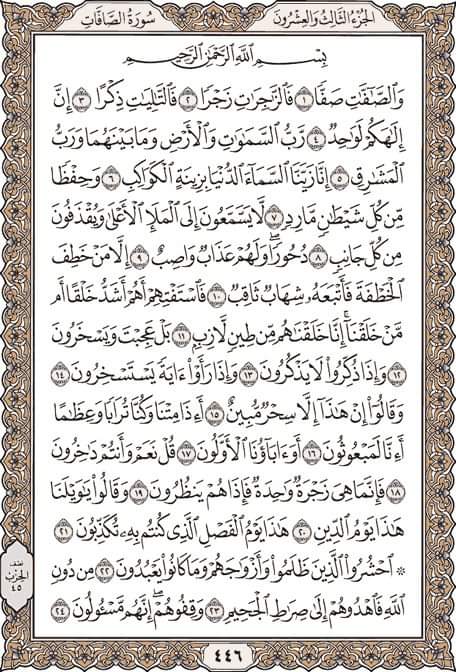 سُورَةُ الصَّافَّاتِ
الجُزْءُ الثَّالِثُ وَالعِشْرُونَ
بِسْمِ اللَّهِ الرَّحْمَٰنِ الرَّحِيمِ
وَالصَّٰٓفَّٰتِ صَفًّا ١ فَالزَّٰجِرَٰتِ زَجْرًا ٢ فَالتَّٰلِيَٰتِ ذِكْرًا ٣ إِنَّ
إِلَٰهَكُمْ لَوَٰحِدٌ ٤ رَّبُّ السَّمَٰوَٰتِ وَالْأَرْضِ وَمَا بَيْنَهُمَا وَرَبُّ
الْمَشَٰرِقِ ٥ إِنَّا زَيَّنَّا السَّمَآءَ الدُّنْيَا بِزِينَةٍ الْكَوَاكِبِ ٦ وَحِفْظًا
مِّن كُلِّ شَيْطَٰنٍ مَّارِدٍ ٧ لَّا يَسَّمَّعُونَ إِلَى الْمَلَإِ الْأَعْلَىٰ وَيُقْذَفُونَ
مِن كُلِّ جَانِبٍ ٨ دُحُورًا ۖ وَلَهُمْ عَذَابٌ وَاصِبٌ ٩ إِلَّا مَنْ خَطِفَ
الْخَطْفَةَ فَأَتْبَعَهُۥ شِهَابٌ ثَاقِبٌ ١٠ فَاسْتَفْتِهِمْ أَهُمْ أَشَدُّ خَلْقًا أَم
مَّنْ خَلَقْنَآ ۚ إِنَّا خَلَقْنَٰهُم مِّن طِينٍ لَّازِبٍ ١١ بَلْ عَجِبْتَ وَيَسْخَرُونَ
١٢ وَإِذَا ذُكِّرُوا۟ لَا يَذْكُرُونَ ١٣ وَإِذَا رَأَوْا۟ ءَايَةً يَسْتَسْخِرُونَ ١٤
وَقَالُوٓا۟ إِنْ هَٰذَآ إِلَّا سِحْرٌ مُّبِينٌ ١٥ أَءِذَا مِتْنَا وَكُنَّا تُرَابًا وَعِظَٰمًا
أَءِنَّا لَمَبْعُوثُونَ ١٦ أَوَءَابَآؤُنَا الْأَوَّلُونَ ١٧ قُلْ نَعَمْ وَأَنتُمْ دَٰخِرُونَ
١٨ فَإِنَّمَا هِىَ زَجْرَةٌ وَٰحِدَةٌ فَإِذَا هُمْ يَنظُرُونَ ١٩ وَقَالُوا۟ يَٰوَيْلَنَا
هَٰذَا يَوْمُ الدِّينِ ٢٠ هَٰذَا يَوْمُ الْفَصْلِ الَّذِى كُنتُم بِهِۦ تُكَذِّبُونَ ٢١
۞ احْشُرُوا۟ الَّذِينَ ظَلَمُوا۟ وَأَزْوَٰجَهُمْ وَمَا كَانُوا۟ يَعْبُدُونَ ٢٢ مِن دُونِ
اللَّهِ فَاهْدُوهُمْ إِلَىٰ صِرَٰطِ الْجَحِيمِ ٢٣ وَقِفُوهُمْ ۖ إِنَّهُم مَّسْـُٔولُونَ ٢٤
نصف
الحزب
٤٥
٤٤٦